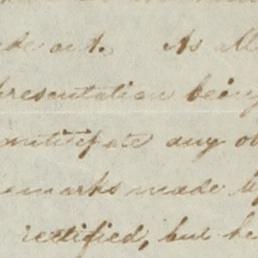 de out. As all
presentation being
anticipate any ob
emarks made by
rectified, but be